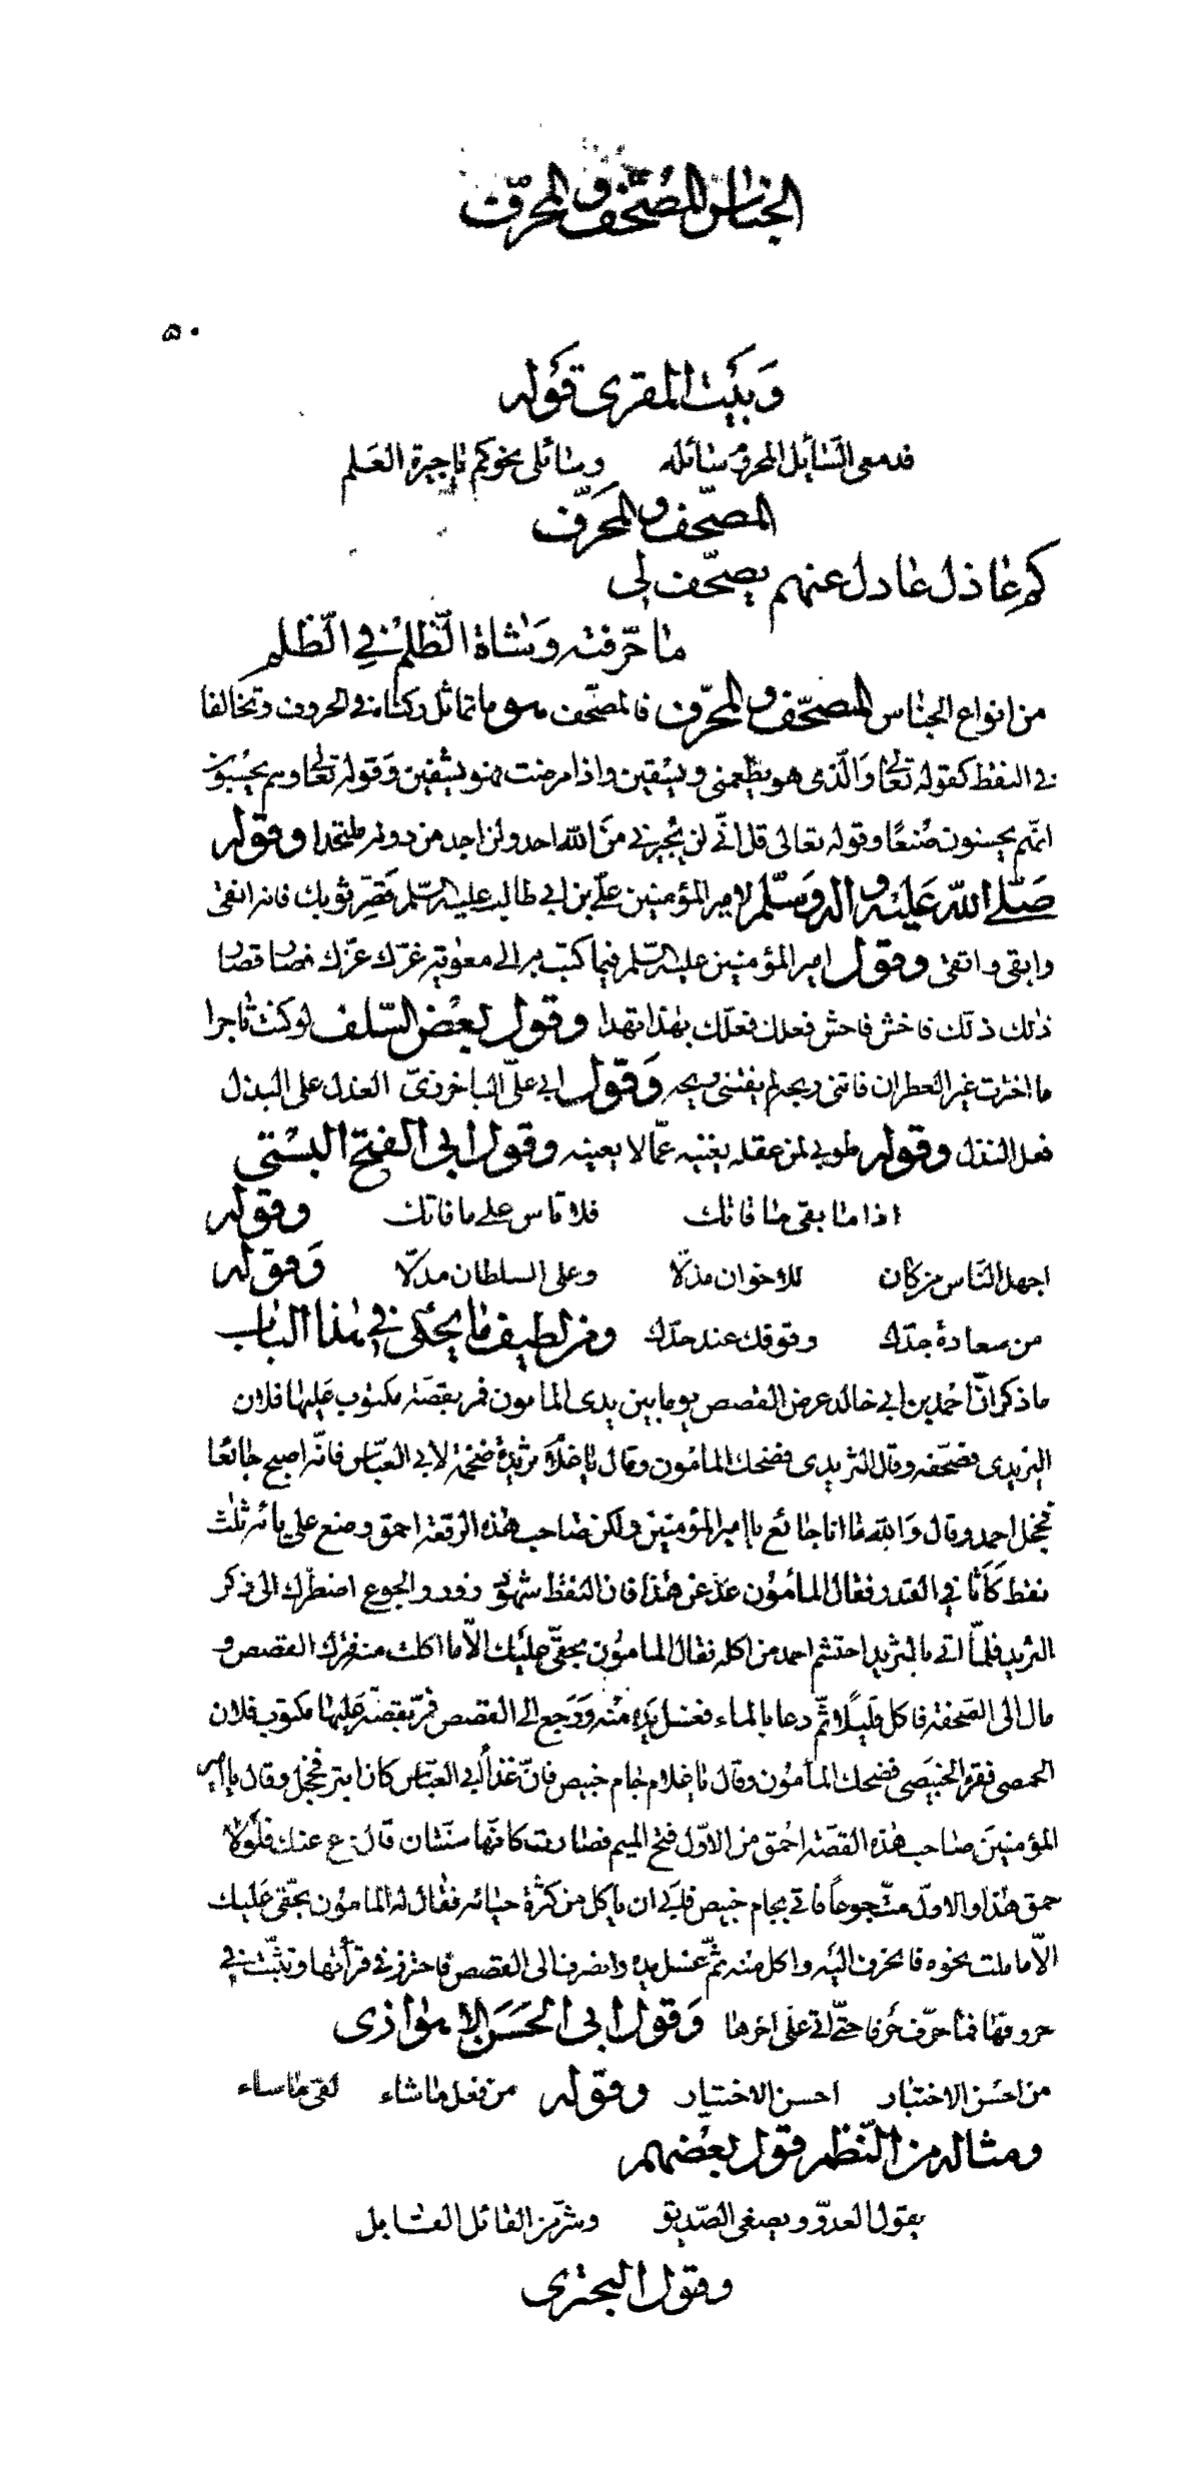 الجناس المصحّف والمحرّف
۵۰
وبيت المقرى قوله
فدمعي السّايل المحروم سائله وسائلي نحوكم يا جيرة العلم
المصحّف والمحرّف
كم عاذل عادل عنهم يصحّف لي
ما حرّفته وشاة الظّلم في الظّلم
من انواع الجناس المصحّف والمحرّف فالمصحّف هو ما تماثل ركناه في الحروف وتخالفا
في النقط كقوله تعالى والّذى هو يطعمنى ويسقين واذا مرضت فهو يشفين وقوله تعالى وهم يحسبون
انّهم يحسنون صُنعًا وقوله تعالى قل انّي لن يُجيرني من الله احد ولن اجد من دونه ملتحدا وقوله
صَلّى الله عَلَيه وآله وسَلّم لامير المؤمنين علىّ بن ابي طالب عليه السّلم قصّر ثوبك فانه انقى
وابقى واتقى وقول امير المؤمنين عليه السّلم فيما كتب به الى معوية غرّك عزّك فصار قصار
ذلك ذلك فاخش فاحش فعلك فعلّك بهذا تهدا وقول بعض السّلف لو كنت تاجرا
ما اخترت غير العطر ان فاتني ربحه لم يفتني ريحه وقول ابي علىّ الباخرزيّ العذل على البذل
فعل النذل وقوله طوبى لمن عقله يغنيه عمّا لا يعنيه وقول ابى الفتح البستي
اذا ما بقى ما قاتك فلا تاس على ما فاتك وقوله
اجهل النّاس من كان للاخوان مذلّا وعلى السلطان مدلّا وقوله
من سعادة جدّك وقوفك عند حدّك ومن لطيف ما يحكى في هذا الباب
ما ذكر انّ احمد بن ابي خالد عرض القصص يوما بين يدى المامون فمر بقصّة مكتوب عليها فلان
اليزيدى فصحّفه وقال الثريدى فضحك المامون وقال يا غلام ثريدة ضخمة لابي العبّاس فانّه اصبح جائعًا
فخجل احمد وقال والله ما انا جائع يا امير المؤمنين ولكن صاحب هذه الرقعة احمق وضع على يائه ثلث
نقط كأثافي القدر فقال المأمون عدّ عن هذا فان النقط شهود زور والجوع اضطرّك الى ذكر
الثريد فلمّا اتي بالثريد احتشم احمد من اكله فقال المامون بحقّي عليك الّا ما اكلت منه فترك القصص و
مال الى الصّحفة فاكل قليلًا ثمّ دعا بالماء فغسل يده منه ورجع الى القصص فمرّ بقصّة عليها مكتوب فلان
الحمصي فقرء الخبيصي فضحك المامون وقال يا غلام جام خبيص فانّ غذاء ابي العبّاس كان ابتر فخجل وقال يا امير
المؤمنين صاحب هذه القصّة احمق من الاوّل فتح الميم فصارت كانّها سنّتان قال دع عنك فلولا
حمق هذا والاول متّ جوعاً فاتي بجام خبيص فابى ان ياكل من كثرة حيائه فقال له المامون بحقّي عليك
الّا ما ملت نحوه فانحرف اليه واكل منه ثمّ غسل يده وانصرف الى القصص فاحترز في قرأتها وتثبّت في
حروفها فما حرّف حرفا حتّى اتى على اخرها وقول ابى الحسن الاهوازى
من احسن الاختبار احسن الاختيار وقوله من فعل ما شاء لقى ما ساء
ومثاله من النّظم قول بعضهم
يقول العدوّ ويصغى الصّديق وشرّ من القائل القابل
وقول البحترى